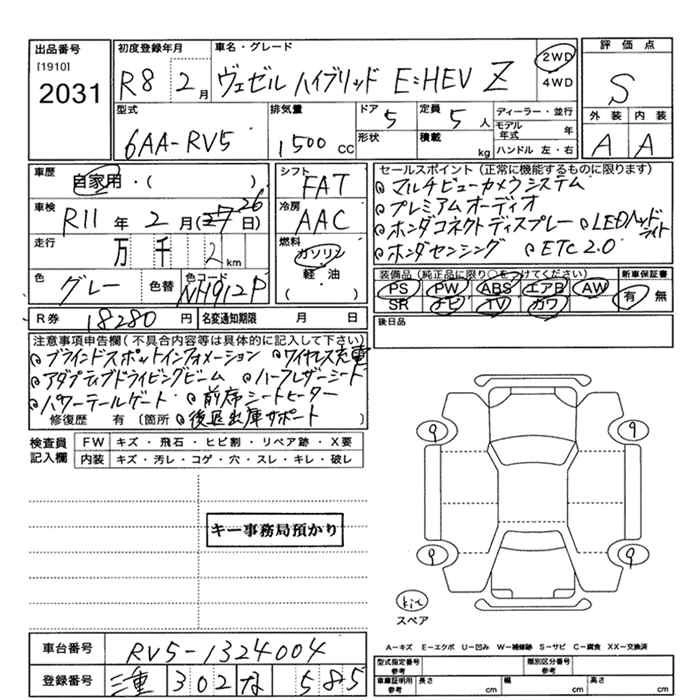 出品番号
[1910]
2031
初度登録年月
R8 2月
車名・グレード
ヴェゼル ハイブリッド E:HEV Z
2WD
4WD
評価点
S
外装 内装
A A
型式
6AA-RV5
排気量
1500 cc
ドア 5
形状
定員 5人
積載 kg
ディーラー・並行
モデル年式 年
ハンドル 左・右
車歴
自家用・( )
車検
R11年 2月(27 26日)
走行
万 千 2 km
色
グレー
色替
色コード
NH912P
シフト
FAT
冷房
AAC
燃料
ガソリン
軽・油
( )
セールスポイント(正常に機能するものに限ります)
マルチビューカメラシステム
プレミアムオーディオ
ホンダコネクトディスプレー LEDヘッドライト
ホンダセンシング ETC2.0
装備品(純正品に限り○をつけてください)
PS PW ABS エアB AW
SR ナビ TV カワ
新車保証書
有 無
R券 18280円 名変通知期限 月 日
後日品
注意事項申告欄(不具合内容等は具体的に記入して下さい)
ブラインドスポットインフォメーション ワイヤレス充電
アダプティブドライビングビーム ハーフレザーシート
パワーテールゲート 前席シートヒーター
修復歴 有 [箇所 後退出庫サポート
検査員記入欄
FW キズ・飛石・ヒビ割・リペア跡・X要
内装 キズ・汚レ・コゲ・穴・スレ・キレ・破レ
キー事務局預かり
9 9
9 9
kit
スペア
A-キズ E-エクボ U-凹み W-補修跡 S-サビ C-腐食 XX-交換済
車台番号 RV5-1324004
登録番号 三重 302 な 585
型式指定番号 参考
類別区分番号 参考
車庫証明用 参考 長さ cm 幅 cm 高さ cm